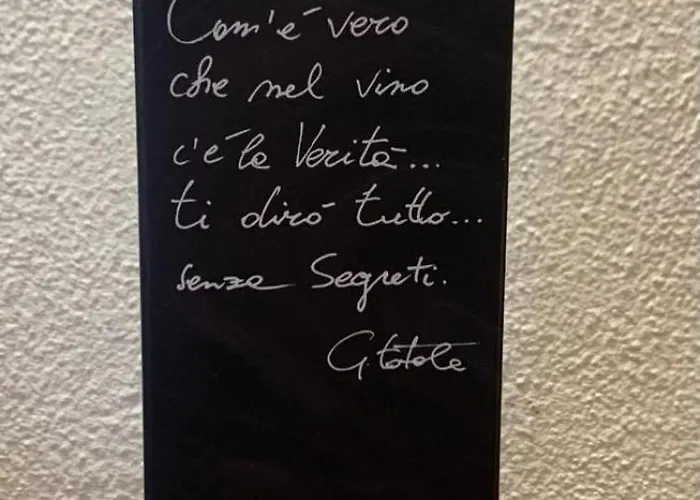 Com'é vero
che nel vino
c'é la Veritá...
ti diró tutto...
senza Segreti.
G. Totola